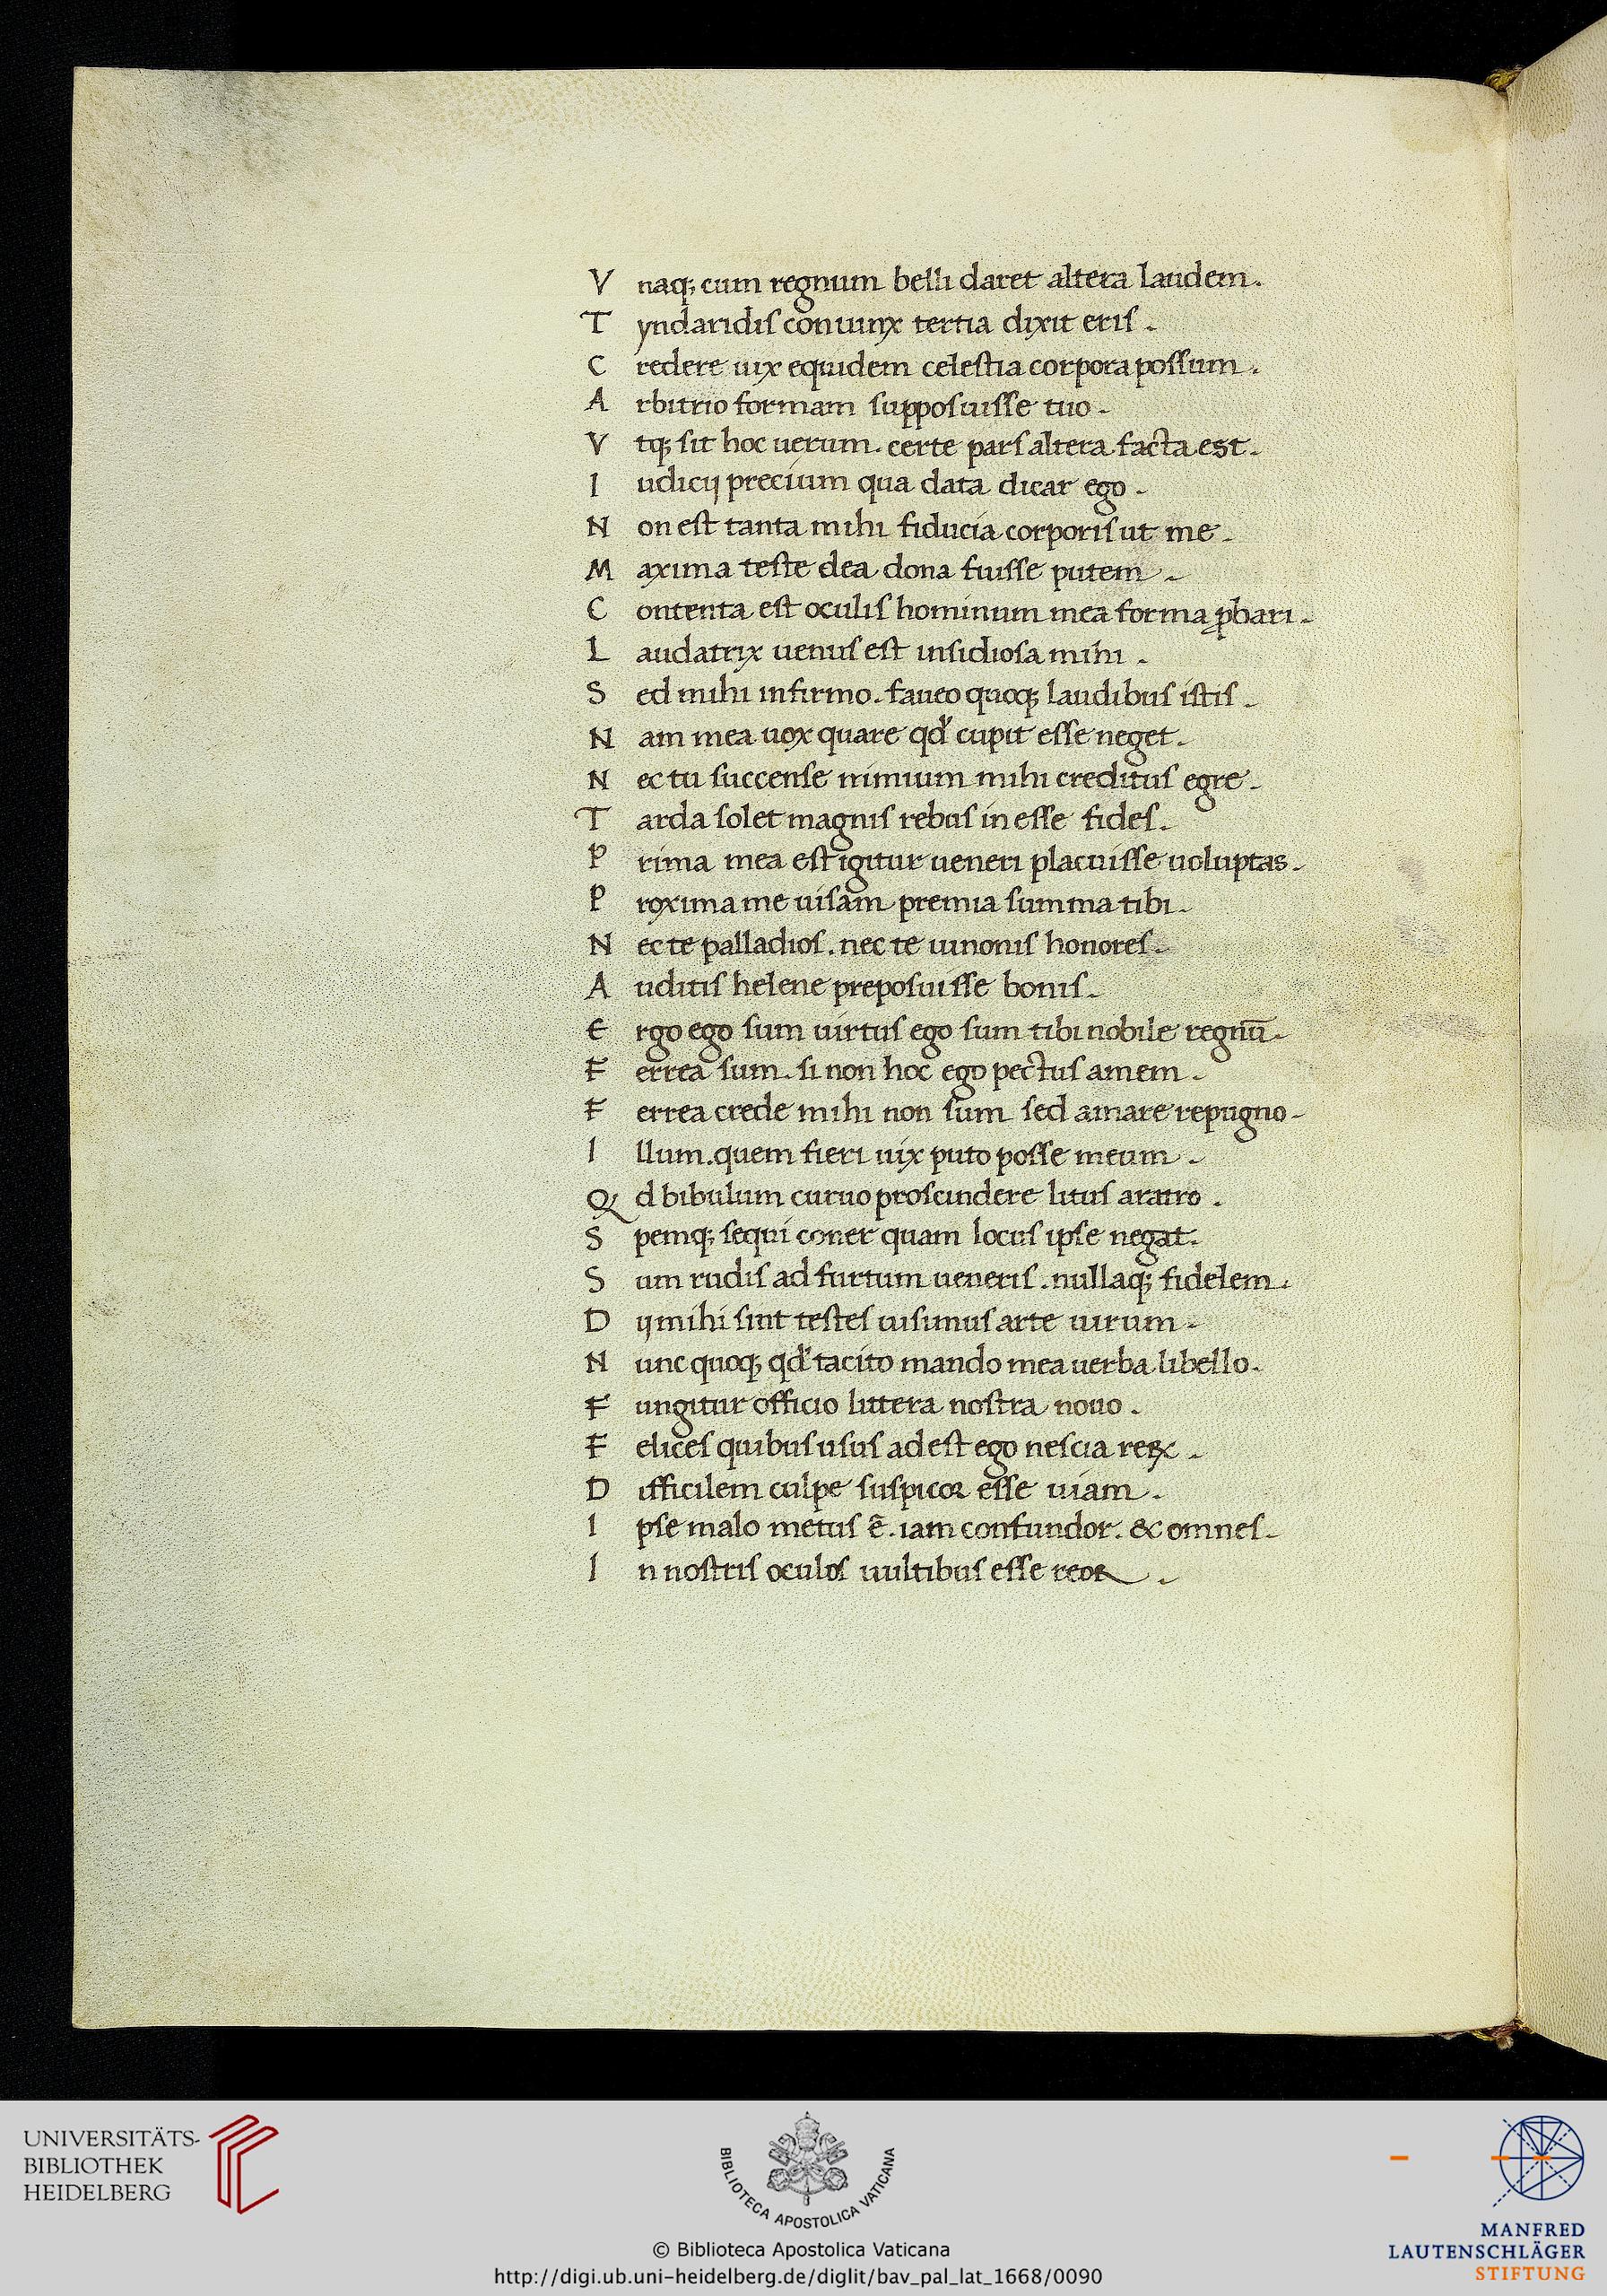 V naq; cum regnum belli daret altera laudem.
T yndaridis coniunx tertia dixit eris.
C redere uix equidem celestia corpora possum.
A rbitrio formam supposuisse tuo.
V tq; sit hoc uerum. certe pars altera facta est.
I udicij precium qua data dicar ego.
N on est tanta mihi fiducia corporis ut me.
M axima teste dea dona fuisse putem.
C ontenta est oculis hominum mea forma ꝓbari.
L audatrix uenus est insidiosa mihi.
S ed mihi infirmo. faueo quoq; laudibus istis.
N am mea uox quare qd' cupit esse neget.
N ec tu succense nimium mihi creditus egre.
T arda solet magnis rebus in esse fides.
P rima mea est igitur ueneri placuisse uoluptas.
P roxima me uisam premia summa tibi.
N ec te palladios. nec te iunonis honores.
A uditis helene preposuisse bonis.
E rgo ego sum uirtus ego sum tibi nobile regnū.
F errea sum. si non hoc ego pectus amem.
F errea crede mihi non sum sed amare repugno.
I llum. quem fieri uix puto posse meum.
Q d bibulum curuo proscindere litus aratro.
S pemq; sequi coner quam locus ipse negat.
S um rudis ad furtum ueneris. nullaq; fidelem.
D ij mihi sint testes lusimus arte uirum.
N unc quoq; qd' tacito mando mea uerba libello.
F ungitur officio littera nostra nouo.
F elices quibus usus adest ego nescia reꝝ.
D ifficilem culpe suspicor esse uiam.
I pse malo metus ē. iam confundor. & omnes.
I n nostris oculos uultibus esse reor.
UNIVERSITÄTS-
BIBLIOTHEK
HEIDELBERG
BIBLIOTECA APOSTOLICA VATICANA
© Biblioteca Apostolica Vaticana
http://digi.ub.uni-heidelberg.de/diglit/bav_pal_lat_1668/0090
MANFRED
LAUTENSCHLÄGER
STIFTUNG